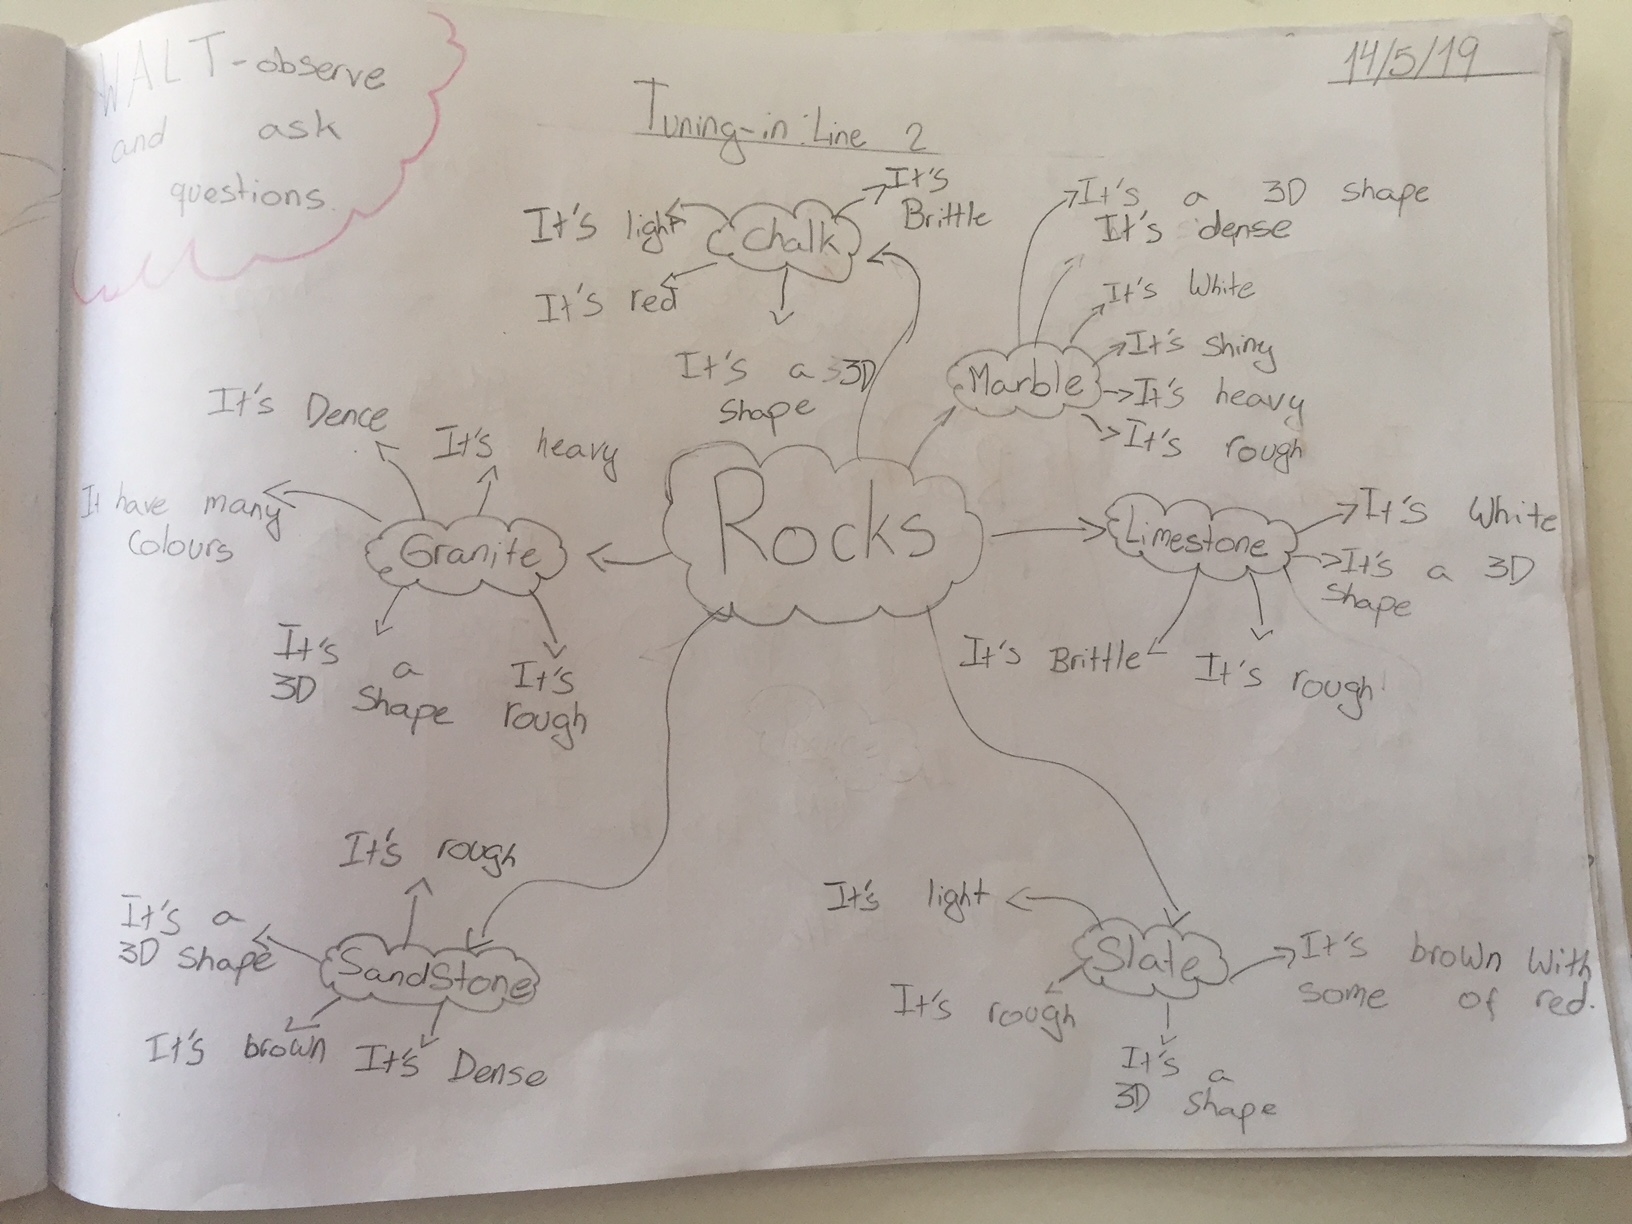 WALT-observe
and ask
questions.
14/5/19
Tuning-in: Line 2
Rocks
Chalk
It's light
It's
Brittle
It's red
It's a 3D
shape
Marble
It's a 3D shape
It's dense
It's White
It's shiny
It's heavy
It's rough
Granite
It's Dence
It's heavy
It have many
colours
It's a
3D shape
It's
rough
Limestone
It's White
It's a 3D
shape
It's Brittle
It's rough
SandStone
It's rough
It's a
3D shape
It's brown
It's Dense
Slate
It's light
It's rough
It's a
3D shape
It's brown With
some of red.